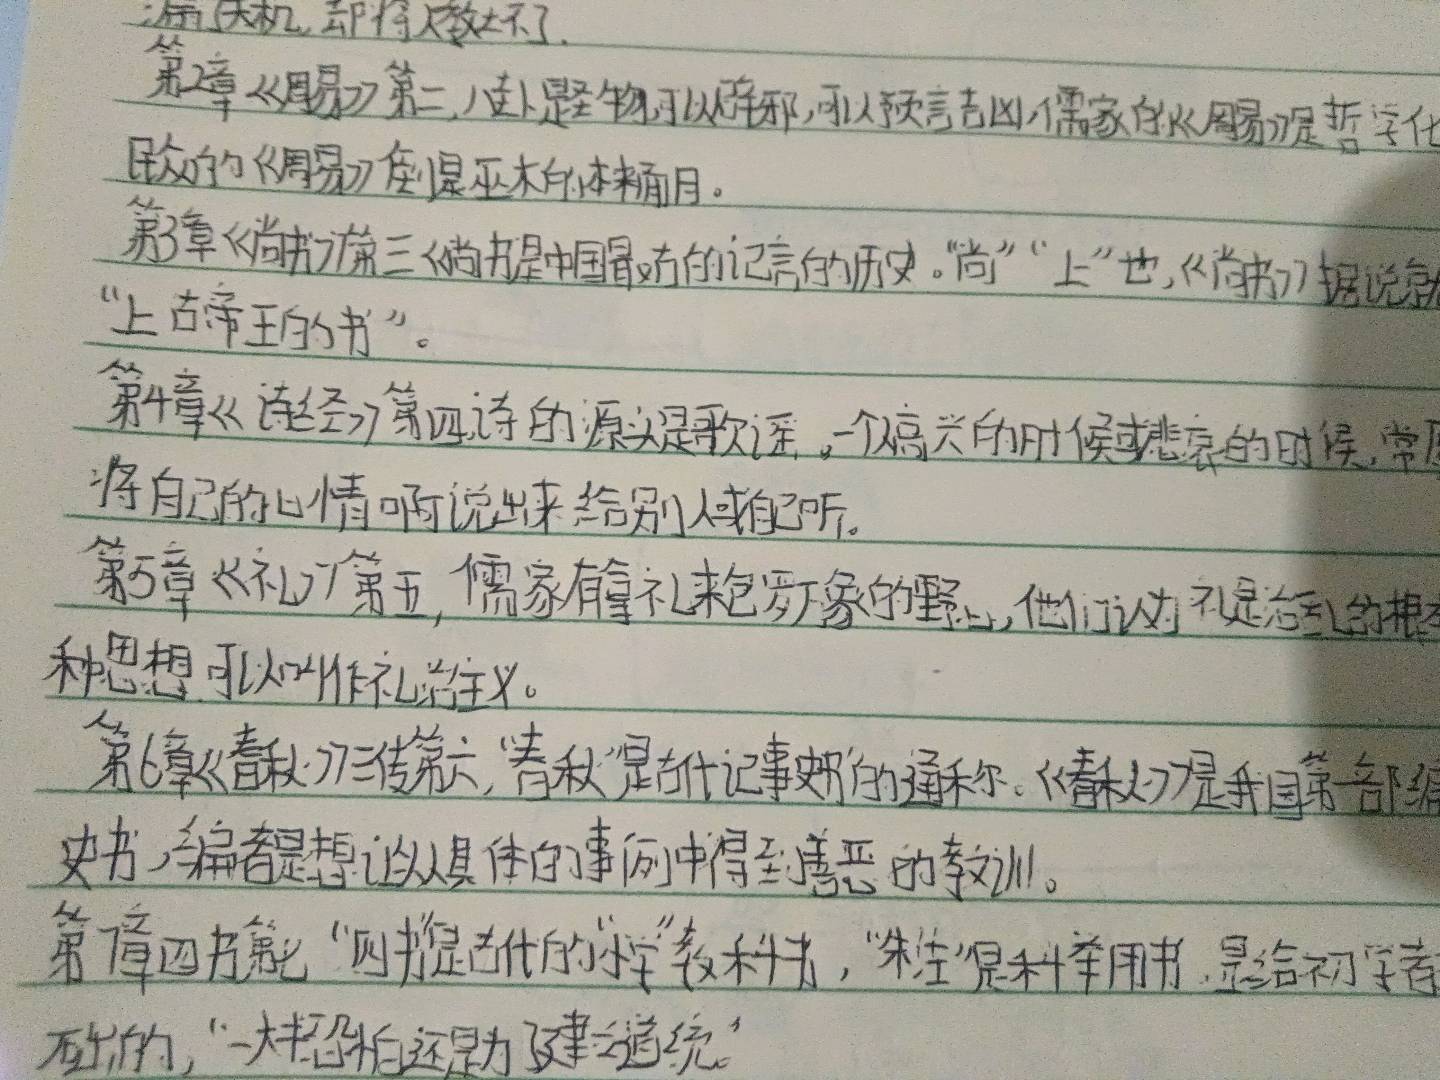 漏了天机,却将人教坏了.
第2章《周易》第二,八卦是圣物,可以辟邪,可以预言吉凶,儒家的《周易》是哲学化
民众的《周易》倒是巫术的本来面目。
第3章《尚书》第三《尚书是中国最古的记言的历史。“尚”“上”也,《尚书》据说就
“上古帝王的书”。
第4章《诗经》第四,诗的源头是歌谣。一个人高兴的时候或悲哀的时候,常愿
将自己的心情啊说出来给别人或自己听。
第5章《礼》第五,儒家有拿礼来包罗万象的野心,他们认为礼是治乱的根本
种思想可以叫作礼治主义。
第6章《春秋》三传第六,“春秋”是古代记事史书的通称。《春秋》是我国第一部编
史书,编者是想让以具体的事例中得到善恶的教训。
第7章四书第七“四书”是古代的“小学”教科书,“朱注”是科举用书,是给初学者
础的,“一大半恐怕还是为了建立道统”